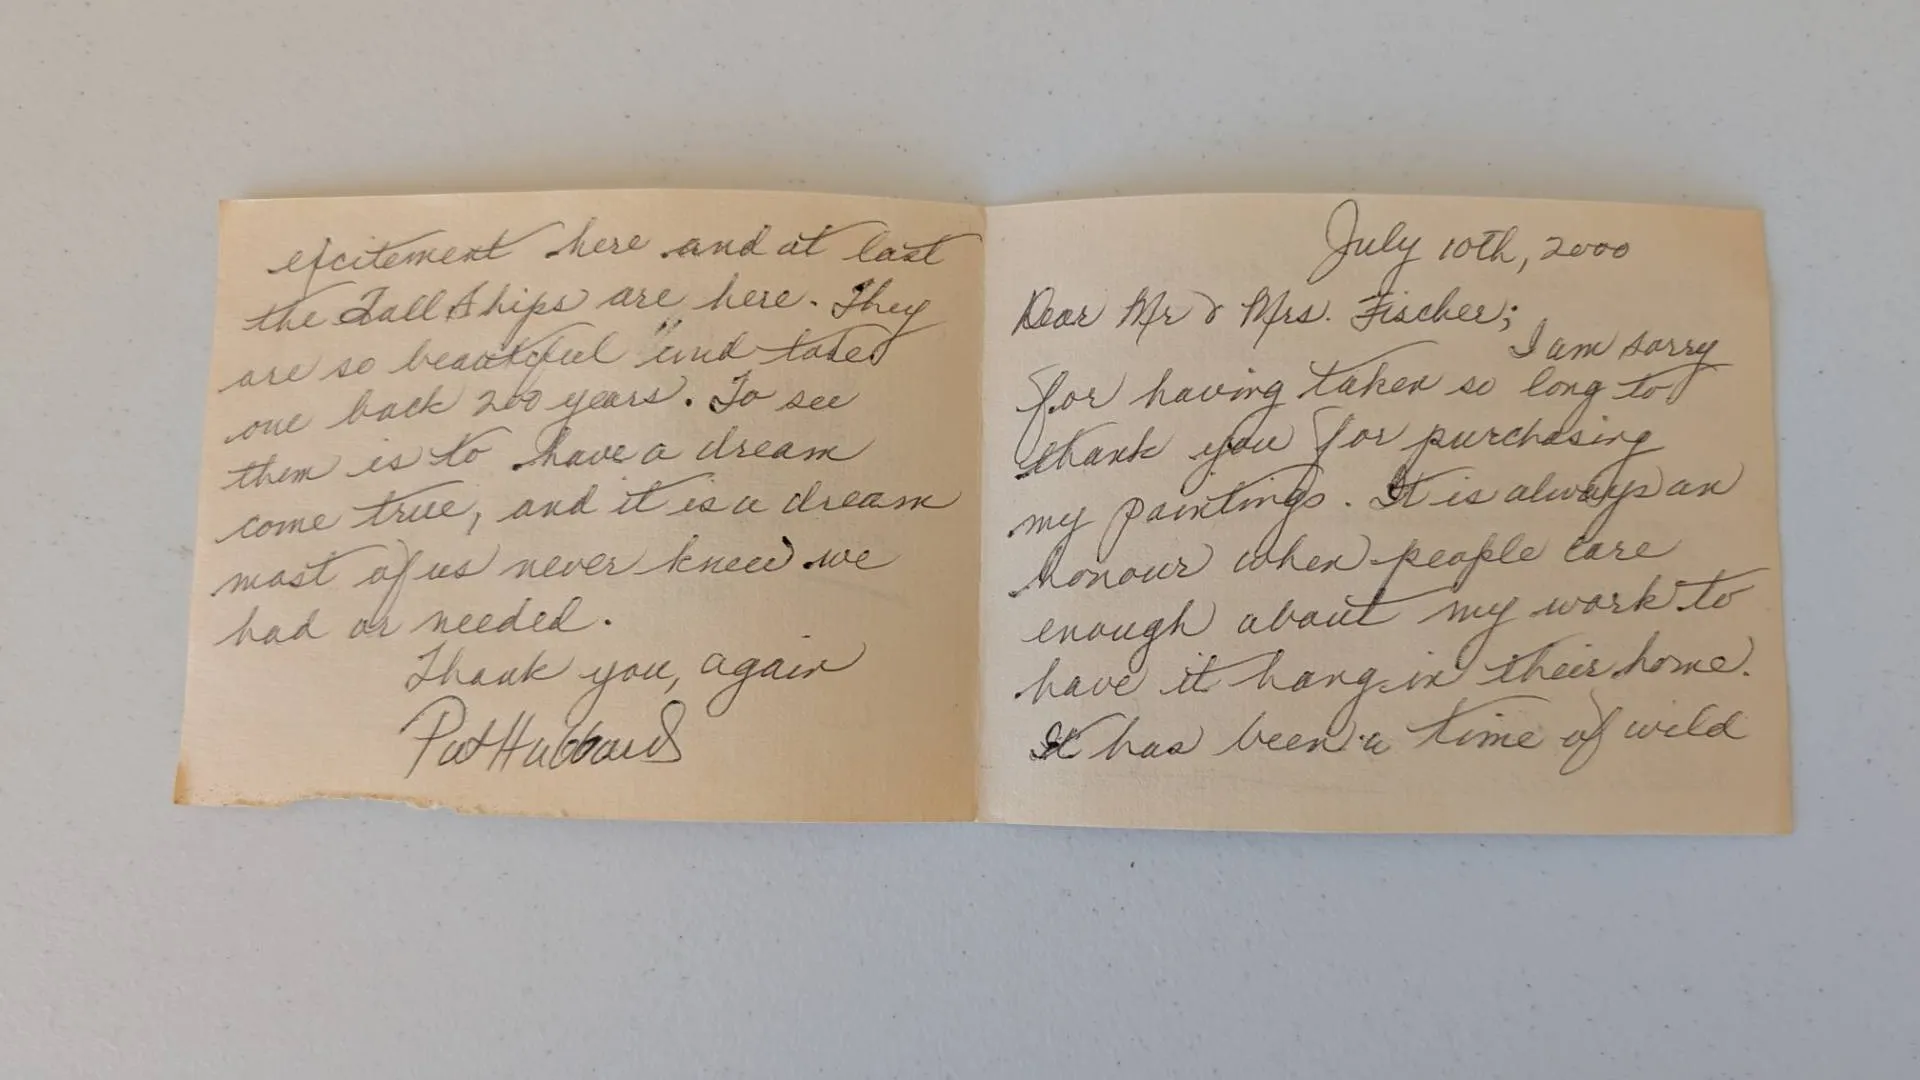 July 10th, 2000
Dear Mr & Mrs. Fischer;
I am sorry
for having taken so long to
thank you for purchasing
my paintings. It is always an
honour when people care
enough about my work to
have it hang in their home.
It has been a time of wild
excitement here and at last
the Tall Ships are here. They
are so beautiful and takes
one back 200 years. To see
them is to have a dream
come true, and it is a dream
most of us never knew we
had or needed.
Thank you, again
Pat Hubbard